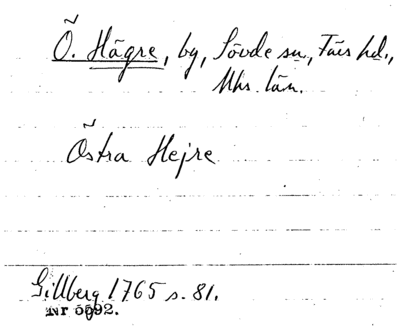 Ö. Hägre, by, Sövde sn, Färs hd.,
Mhs. län.
Östra Hejre
Gillberg 1765 s. 81.
Nr 5592.